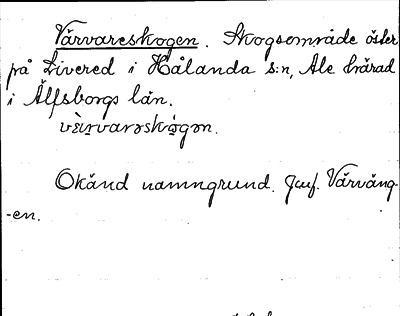 Vårvareskogen. Skogsområde öster
på Livered i Hålanda s:n, Ale härad
i Älfsborgs län.
Okänd namngrund. Jmf. Vårväng-
-en.